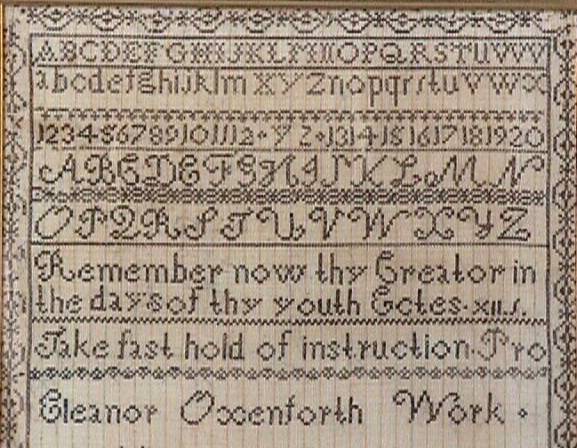 ABCDEFGHIJKLMNOPQRSTUVW
abcdefghijklm xyznopqrstuvwx
123456789101112+yz+1314151617181920
ABCDEFGHIJKLMN
OPQRSTUVWXYZ
Remember now thy Creator in
the days of thy youth Ecles.xii.i.
Take fast hold of instruction.Pro
Eleanor Oxenforth Work.